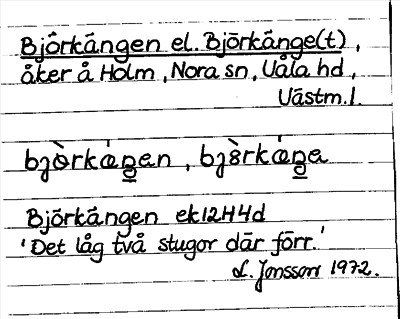 Björkängen el. Björkänge(t),
åker å Holm, Nora sn, Våla hd,
Västm.l.
bjò̀rkáŋen, bjò̀rkáŋa
Björkängen ek12H4d
'Det låg två stugor där förr.'
L. Jonsson 1972.